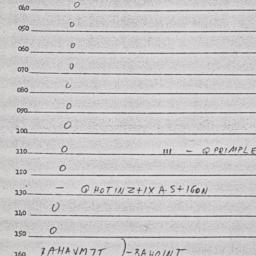 040 0
050 0
060 0
070 0
080 0
090 0
100 0
110 0 III - QPRIMPLE
120 0
130 - QHOTINZ+IXAS+IGON
140 0
150 0
160 BAHAVM7T )-BAHOINT